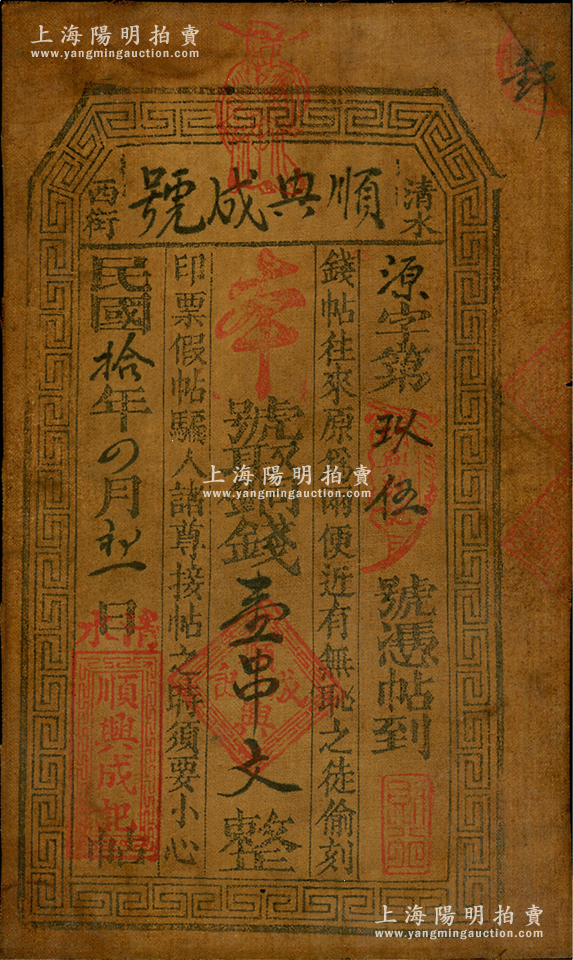 上海陽明拍賣
www.yangmingauction.com
清水
順興成號
西街
源字第玖伍號憑帖到
錢帖往來原爲兩便近有無恥之徒偷刻
本號取銅錢壹串文整
印票假帖騙人諸尊接帖之時須要小心
民國拾年四月初一日
清水
順興成記
帖
成興記
上海陽明拍賣
www.yangmingauction.com
上海陽明拍賣
www.yangmingauction.com